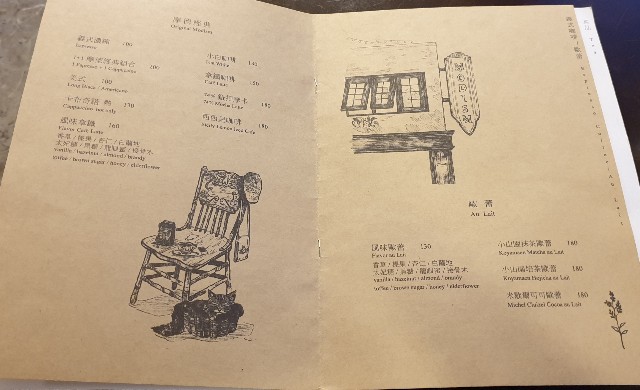 摩德經典
Original Modism
義式濃縮 100
Espresso
1 Espresso + 1 Cappuccino
200
美式 100
Long Black / Americano
卡布奇諾 熱 130
Cappuccino hot only
風味拿鐵 160
Flavor Cafe Latte
香草 / 榛果 / 杏仁 / 白蘭地
太妃糖 / 黑糖 / 龍眼蜜 / 接骨木
vanilla / hazelnut / almond / brandy
toffee / brown sugar / honey / elderflower
小白咖啡 140
Flat White
拿鐵咖啡
摩卡
西西里咖啡
MODISM
歐蕾
Au Lait
風味歐蕾 150
Flavor au Lait
香草 / 榛果 / 杏仁 / 白蘭地
太妃糖 / 黑糖 / 龍眼蜜 / 接骨木
vanilla / hazelnut / almond / brandy
toffee / brown sugar / honey / elderflower
抹茶歐蕾 160
Koyamaen Matcha au Lait
小山園焙茶歐蕾 160
Koyamaen Hojicha au Lait
米歇爾可可歐蕾 180
Michel Cluizel Cocoa au Lait
義式咖啡/歐蕾
Espresso Coffee/Au Lait
Tea